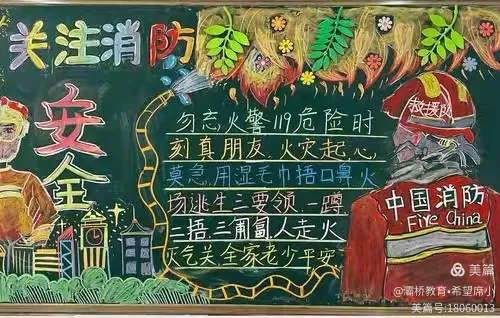 关注消防
安全
勿忘火警119危险时
刻真朋友,火灾起,心
莫急,用湿毛巾捂口鼻,火
场逃生三要领,一蹲
二捂三匍匐人走火
灭气关全家老少平安
救援队
中国消防
Five China
美篇
@灞桥教育•希望席小
美篇号:18060013